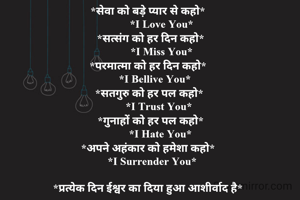 *सेवा को बड़े प्यार से कहो*
*I Love You*
*सत्संग को हर दिन कहो*
*I Miss You*
*परमात्मा को हर दिन कहो*
*I Bellive You*
*सतगुरु को हर पल कहो*
*I Trust You*
*गुनाहों को हर पल कहो*
*I Hate You*
*अपने अहंकार को हमेशा कहो*
*I Surrender You*
*प्रत्येक दिन ईश्वर का दिया हुआ आशीर्वाद है*